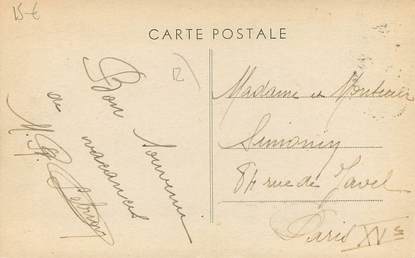 15€
CARTE POSTALE
Bon souvenir
de vacances
M.
Madame et Monsieur
Simonin
84 rue de Javel
Paris XVe